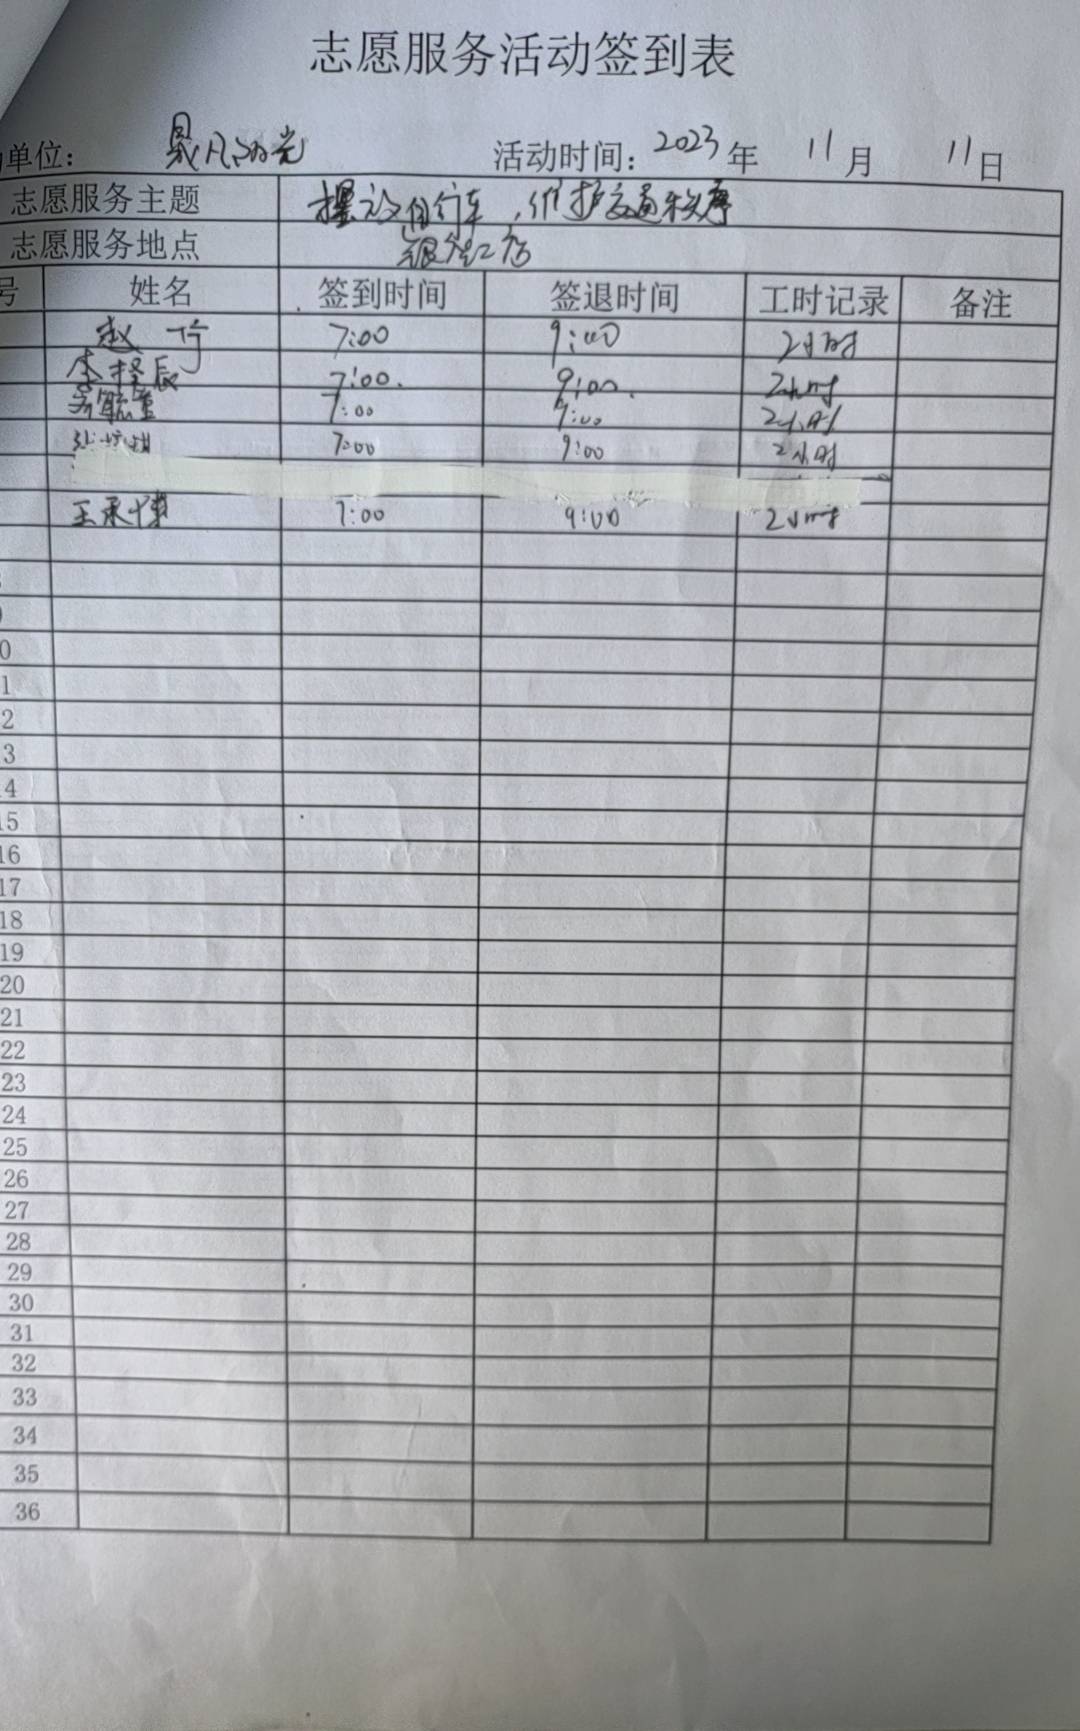 志愿服务活动签到表
单位: 活动时间: 2023 年 11 月 11 日
志愿服务主题 摆放自行车,维护交通秩序
志愿服务地点
号 姓名 签到时间 签退时间 工时记录 备注
赵 7:00 9:00 2小时
李 辰 7:00. 9:00. 2小时
7:00 9:00 2小时
7:00 9:00 2小时
王承 7:00 9:00 2小时
0
1
2
3
4
15
16
17
18
19
20
21
22
23
24
25
26
27
28
29
30
31
32
33
34
35
36